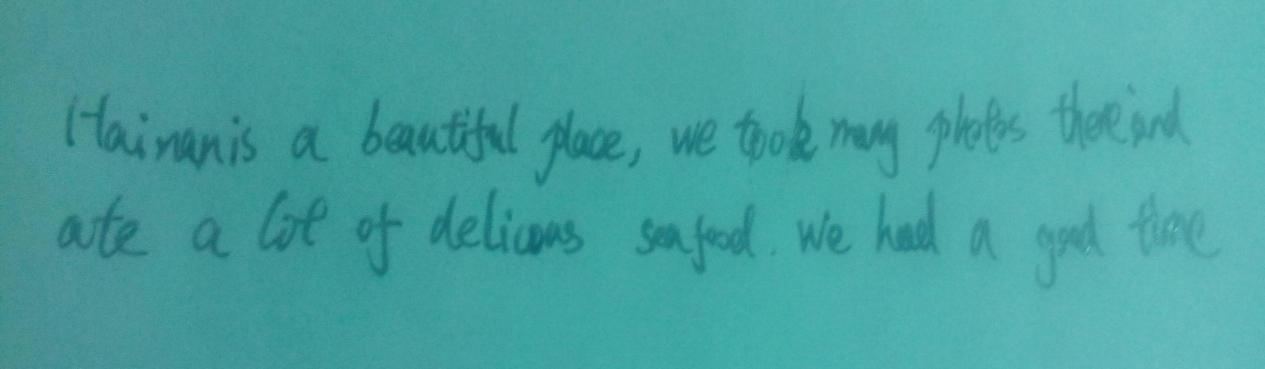 Hainan is a beautiful place, we took many photos there and
ate a lot of delicious seafood. We had a good time